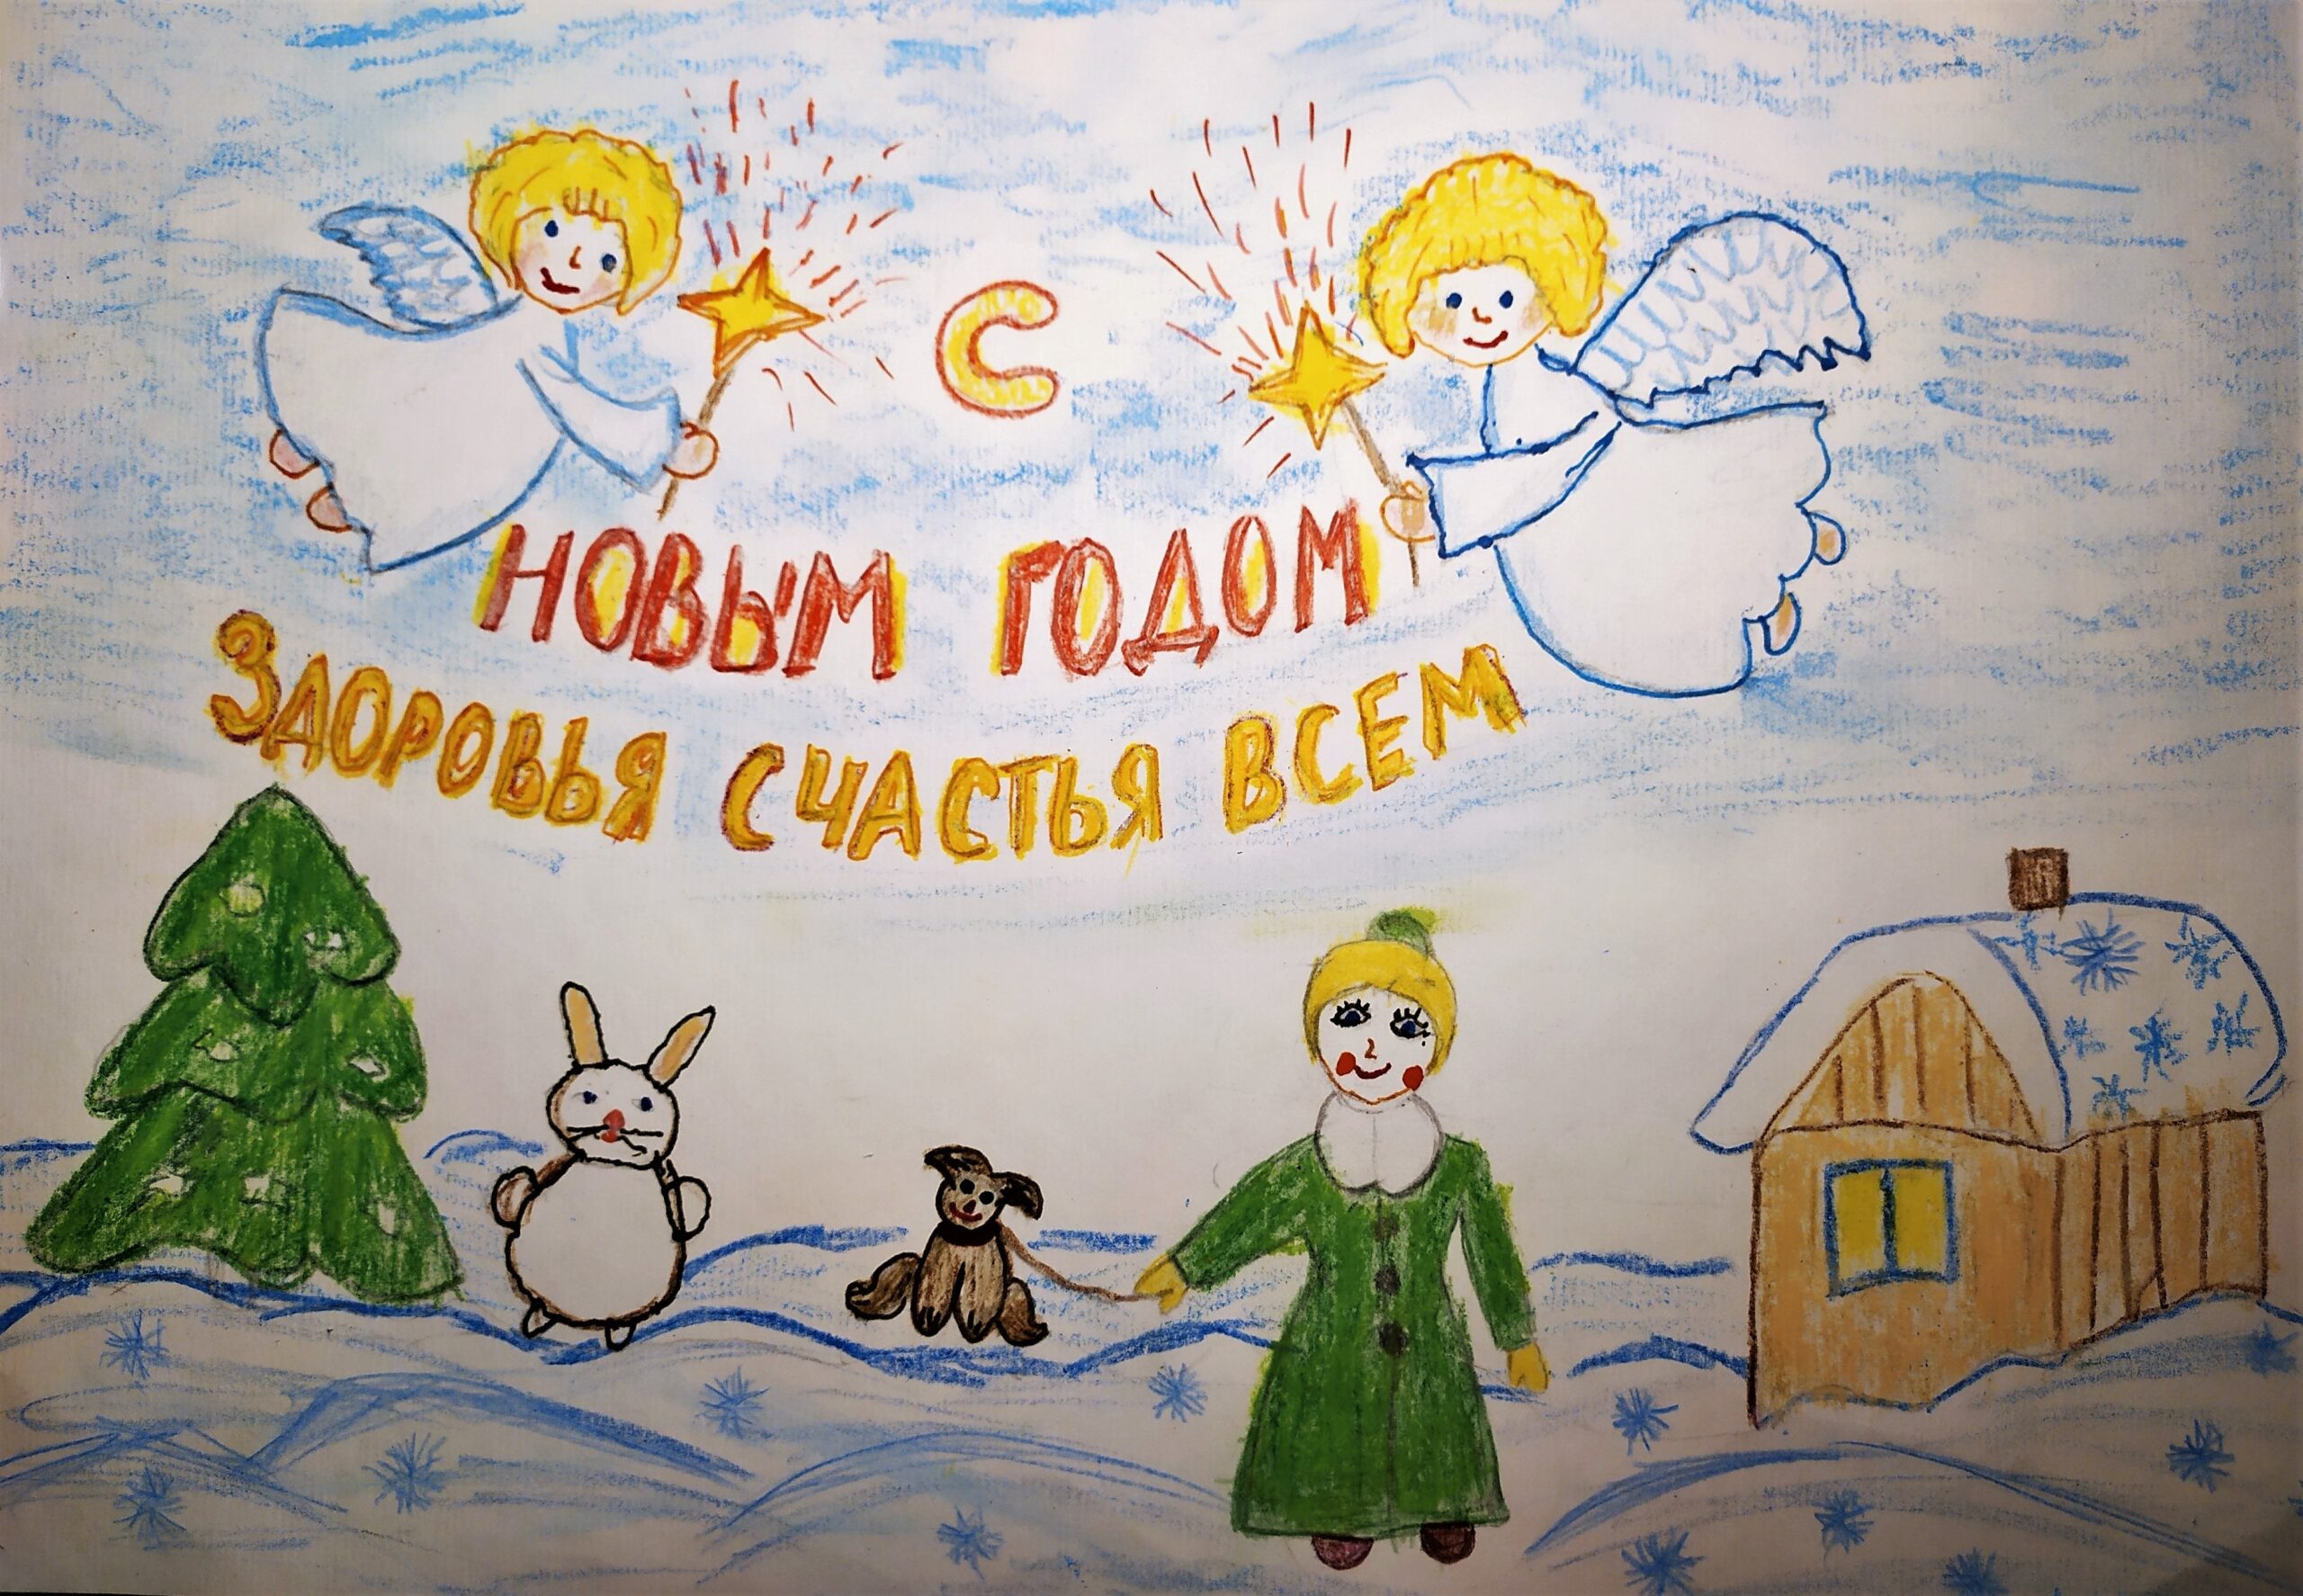 С
НОВЫМ ГОДОМ
ЗДОРОВЬЯ СЧАСТЬЯ ВСЕМ